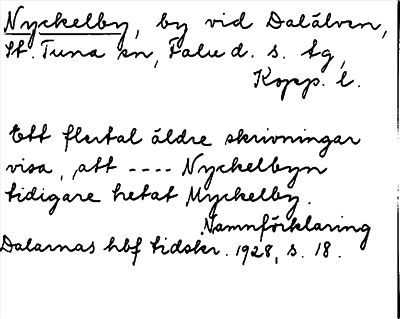 Nyckelby, by vid Dalälven,
St. Tuna sn, Falu d. s. tg,
Kopp. l.
Ett flertal äldre skrivningar
visa, att ---- Nyckelbyn
tidigare hetat Myckelby.
Namnförklaring
Dalarnas hbf tidskr. 1928, s. 18.